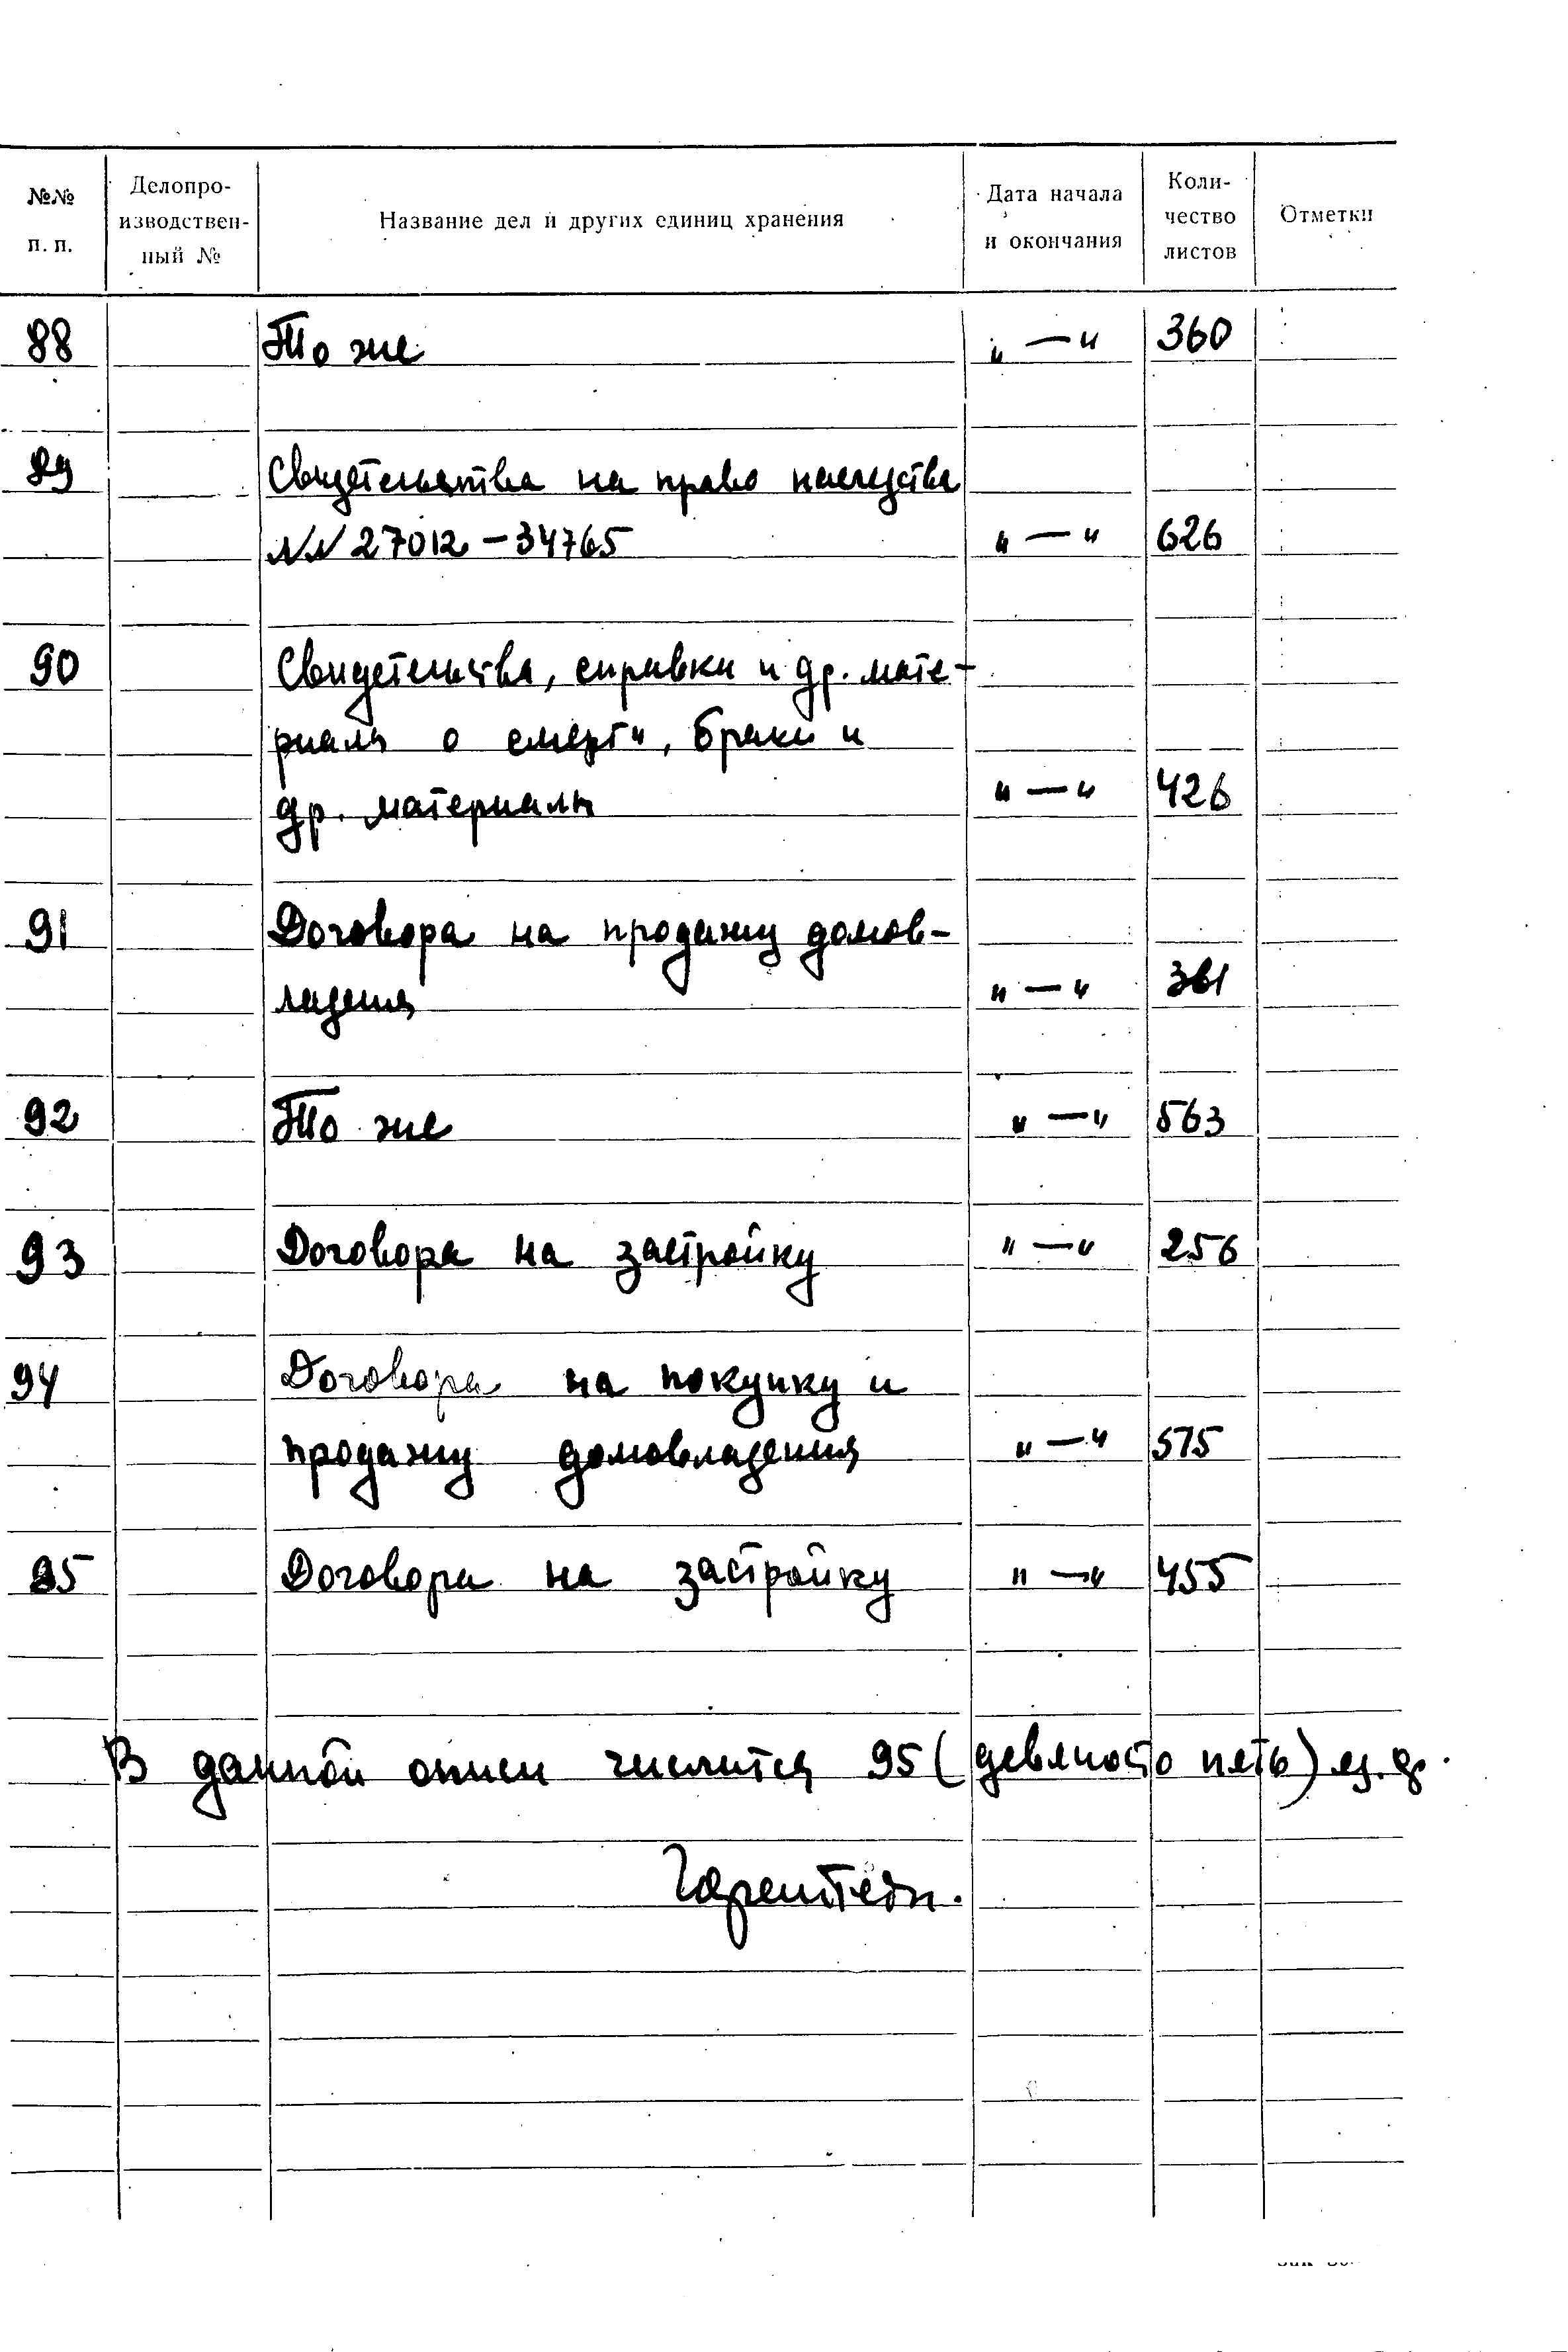 №№ п. п. Делопро-изводствен-ный № Название дел и других единиц хранения Дата начала и окончания Коли-чество листов Отметки
88 То же „ — " 360
89 Свидетельства на право наследства
NN 27012 – 34765 „ — " 626
90 Свидетельства, справки и др. мате-
риалы о смерти, браке и
др. материалы „ — " 426
91 Договора на продажу домов-
ладения „ — " 361
92 То же „ — " 563
93 Договора на застройку „ — " 256
94 Договора на покупку и
продажу домовладения „ — " 575
95 Договора на застройку „ — " 455
В данной описи числится 95 (девяносто пять) ед. хр.